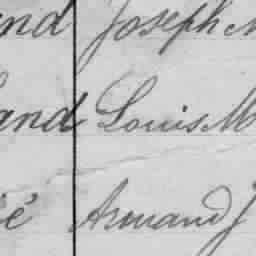 and Joseph M
and Louis M
é Armand J